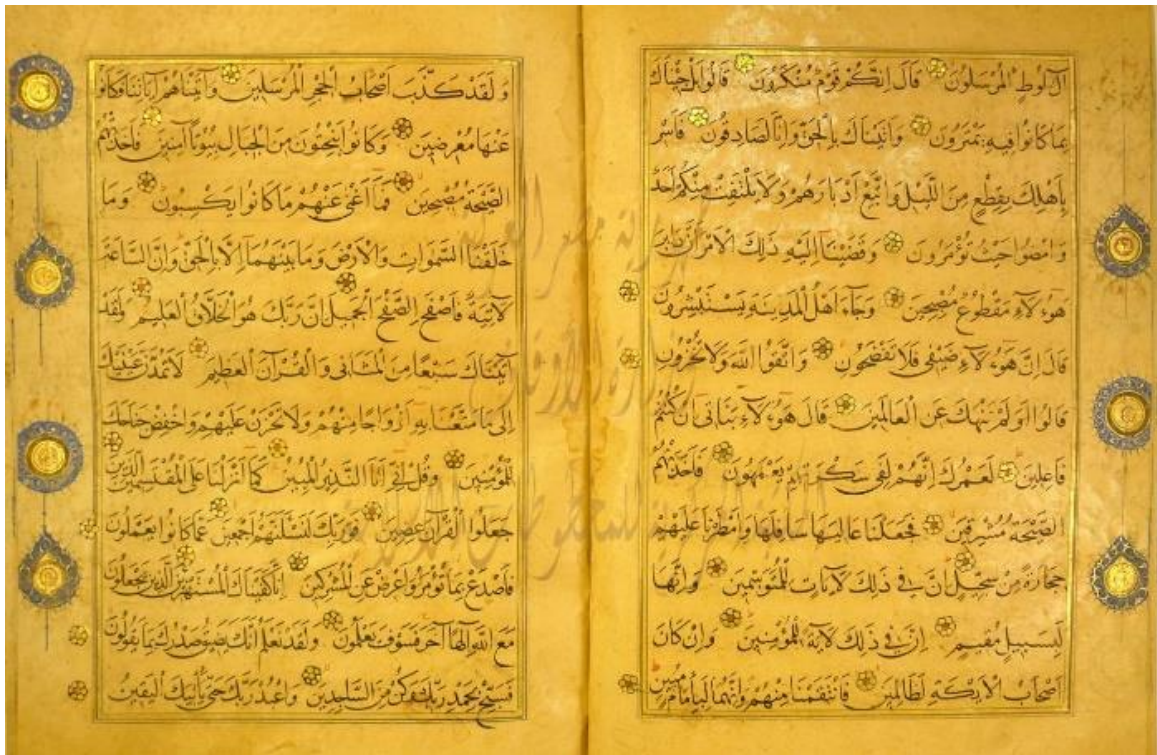 آل لوط المرسلون قال انكم قوم منكرون قالوا بل جئناك
بما كانوا فيه يمترون واتيناك بالحق وانا لصادقون فاسر
باهلك بقطع من الليل واتبع ادبارهم ولا يلتفت منكم احد
وامضوا حيث تؤمرون وقضينا اليه ذلك الامر ان دابر
هؤلاء مقطوع مصبحين وجاء اهل المدينة يستبشرون
قال ان هؤلاء ضيفى فلا تفضحون واتقوا الله ولا تخزون
قالوا اولم ننهك عن العالمين قال هؤلاء بناتى ان كنتم
فاعلين لعمرك انهم لفى سكرتهم يعمهون فاخذتهم
الصيحة مشرقين فجعلنا عاليها سافلها وامطرنا عليهم
حجارة من سجيل ان فى ذلك لآيات للمتوسمين وانها
لبسبيل مقيم ان فى ذلك لآية للمؤمنين وان كان
اصحاب الايكة لظالمين فانتقمنا منهم وانهما لبامام مبين
ولقد كذب اصحاب الحجر المرسلين وآتيناهم آياتنا فكانوا
عنها معرضين وكانوا ينحتون من الجبال بيوتا آمنين فاخذتهم
الصيحة مصبحين فما اغنى عنهم ما كانوا يكسبون وما
خلقنا السموات والارض وما بينهما الا بالحق وان الساعة
لآتية فاصفح الصفح الجميل ان ربك هو الخلاق العليم ولقد
آتيناك سبعا من المثانى والقرآن العظيم لا تمدن عينيك
الى ما متعنا به ازواجا منهم ولا تحزن عليهم واخفض جناحك
للمؤمنين وقل انى انا النذير المبين كما انزلنا على المقتسمين الذين
جعلوا القرآن عضين فوربك لنسئلنهم اجمعين عما كانوا يعملون
فاصدع بما تؤمر واعرض عن المشركين انا كفيناك المستهزئين الذين يجعلون
مع الله الها آخر فسوف يعلمون ولقد نعلم انك يضيق صدرك بما يقولون
فسبح بحمد ربك وكن من الساجدين واعبد ربك حتى يأتيك اليقين